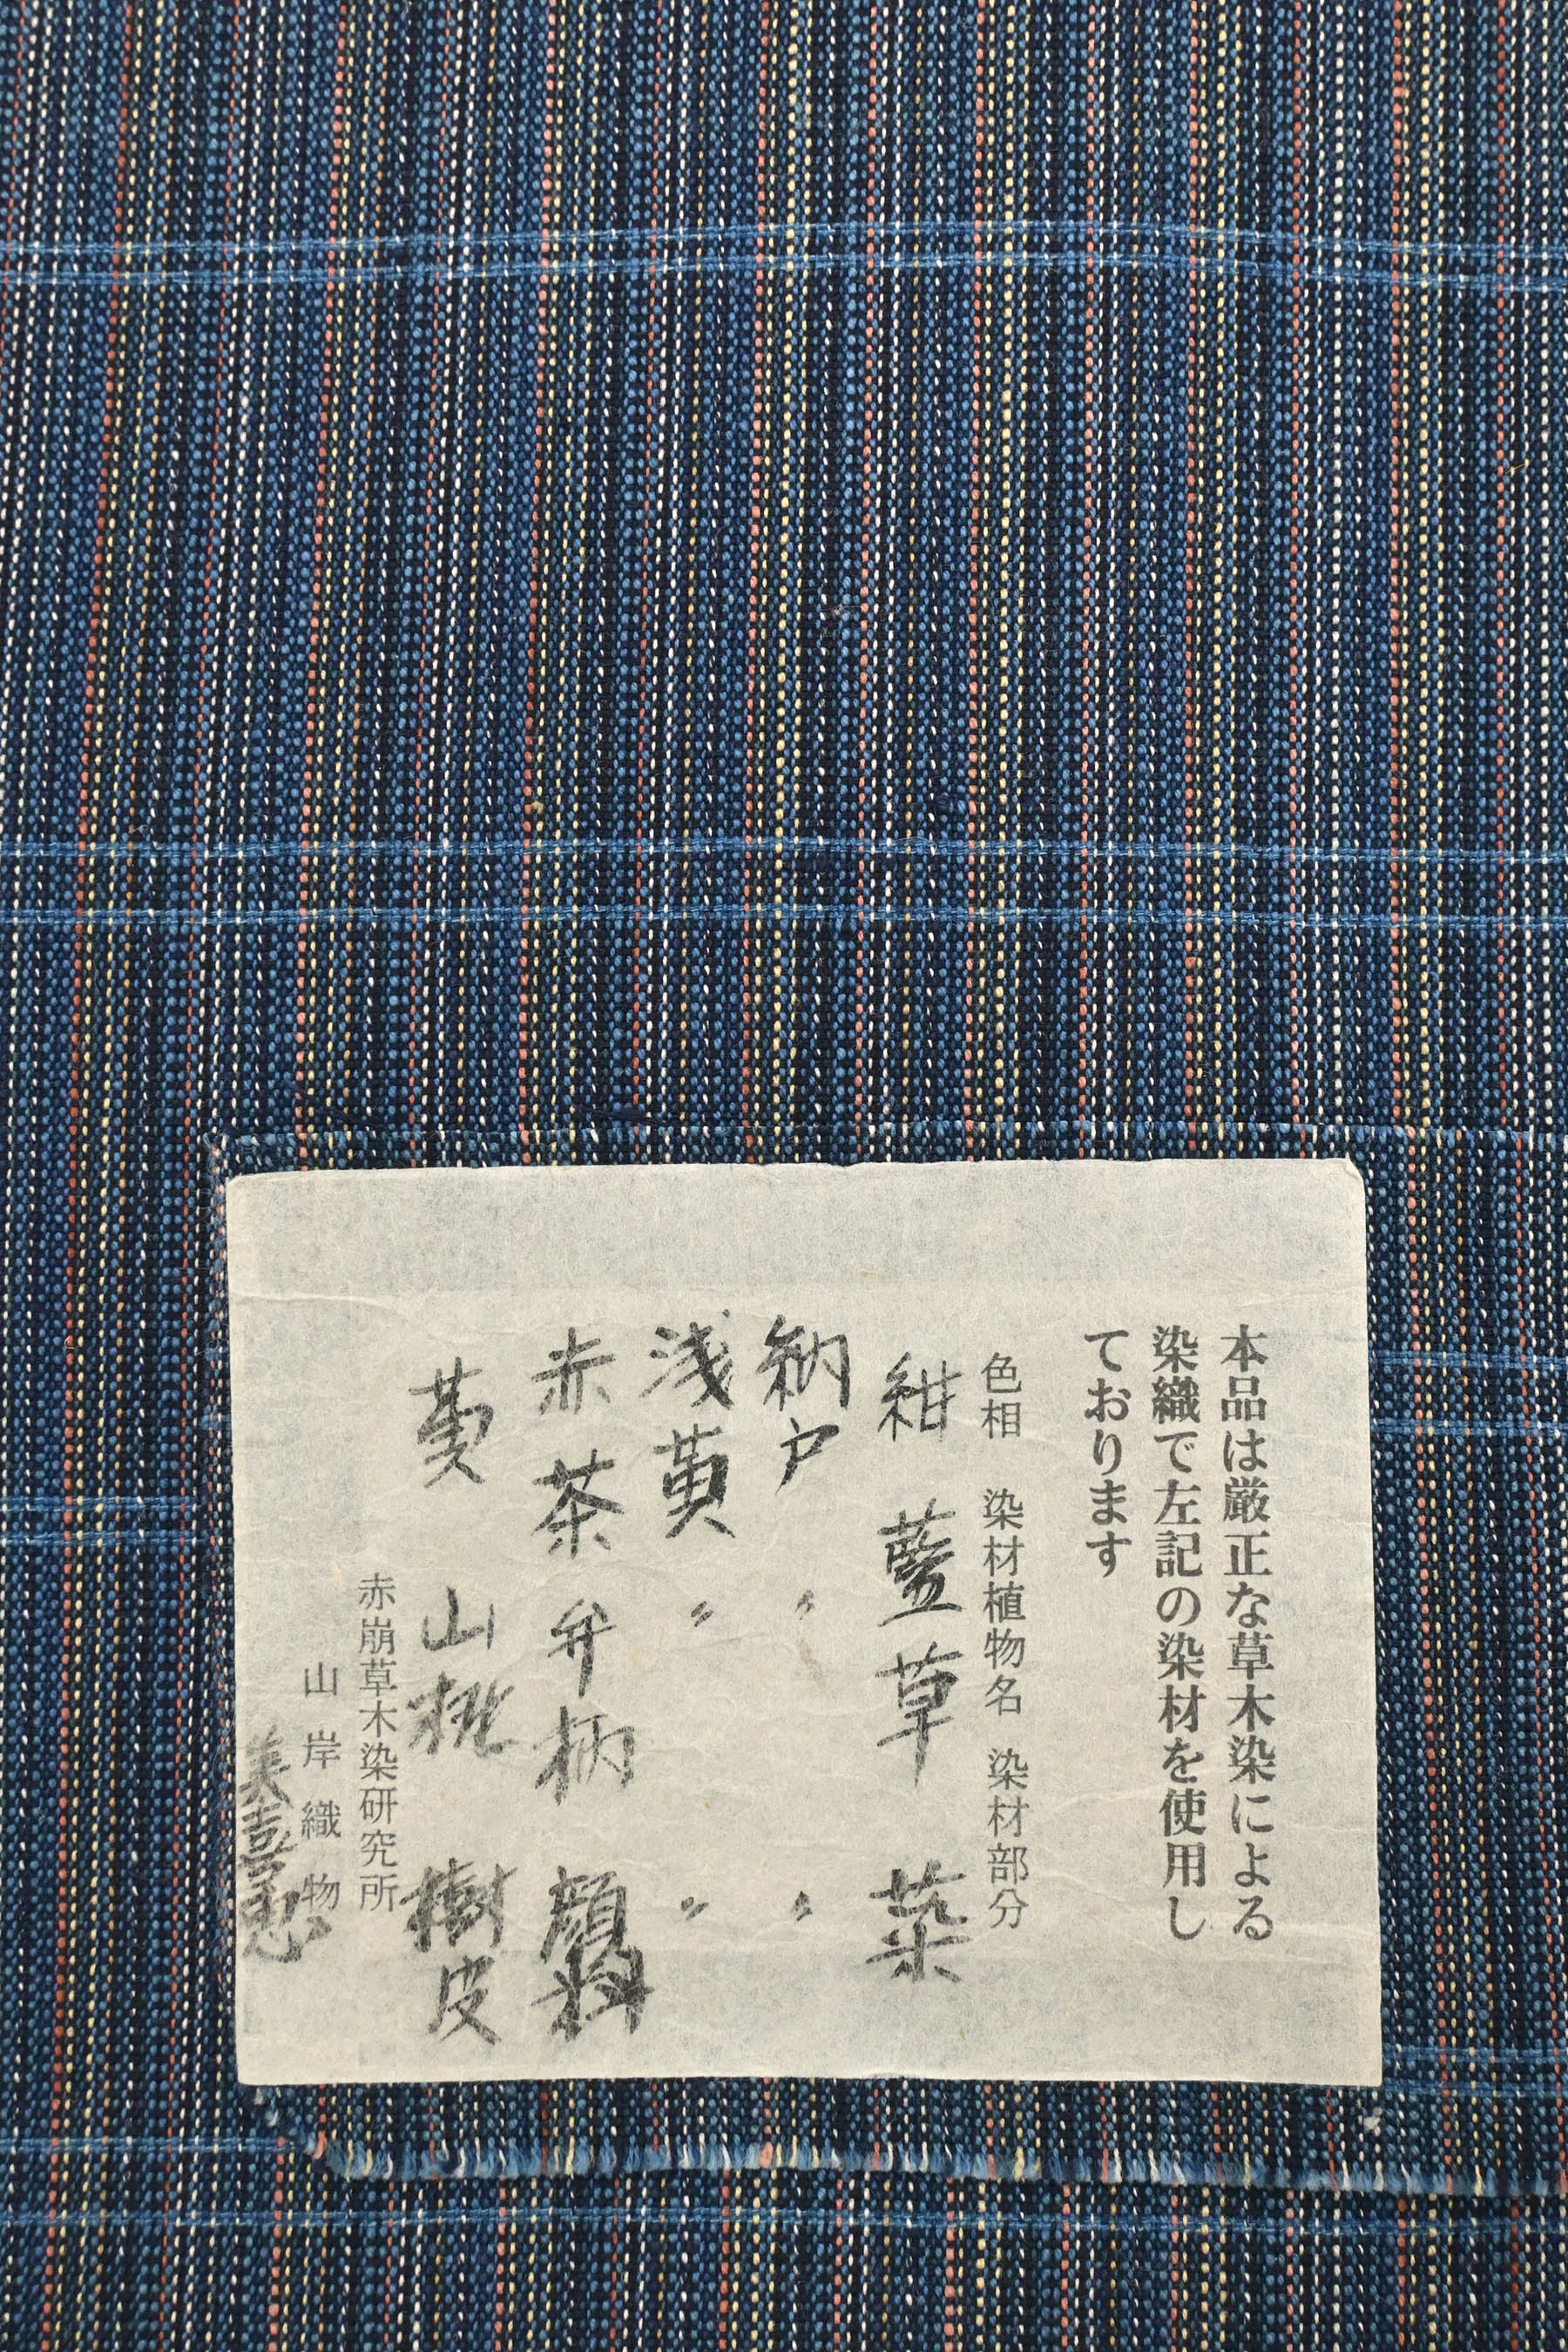 本品は厳正な草木染による
染織で左記の染材を使用し
ております
色相 染材植物名 染材部分
紺 藍草 葉
納戸 〃 〃
浅黄 〃 〃
赤茶 弁柄 顔料
黄 山桃 樹皮
赤崩草木染研究所
山岸織物